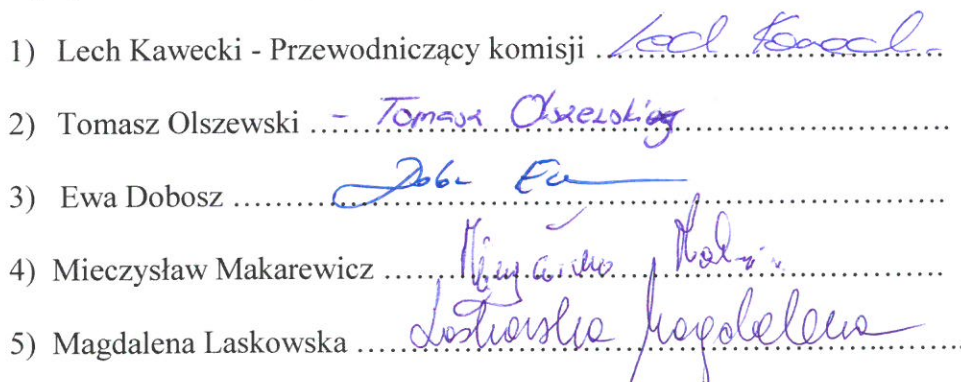 1) Lech Kawecki - Przewodniczący komisji .......... Lech
2) Tomasz Olszewski .... - Tomasz Olszewski
3) Ewa Dobosz .......... Ewa
4) Mieczysław Makarewicz ..........
5) Magdalena Laskowska .......... Laskowska Magdalena